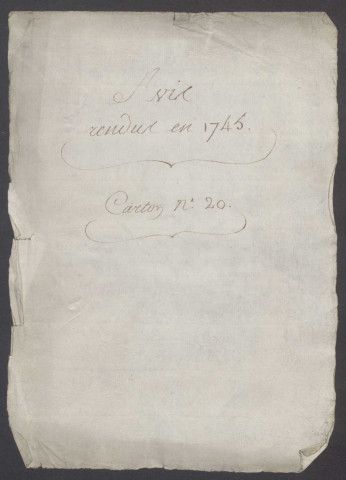 Avis
rendus en 1745.
Carton n.° 20.